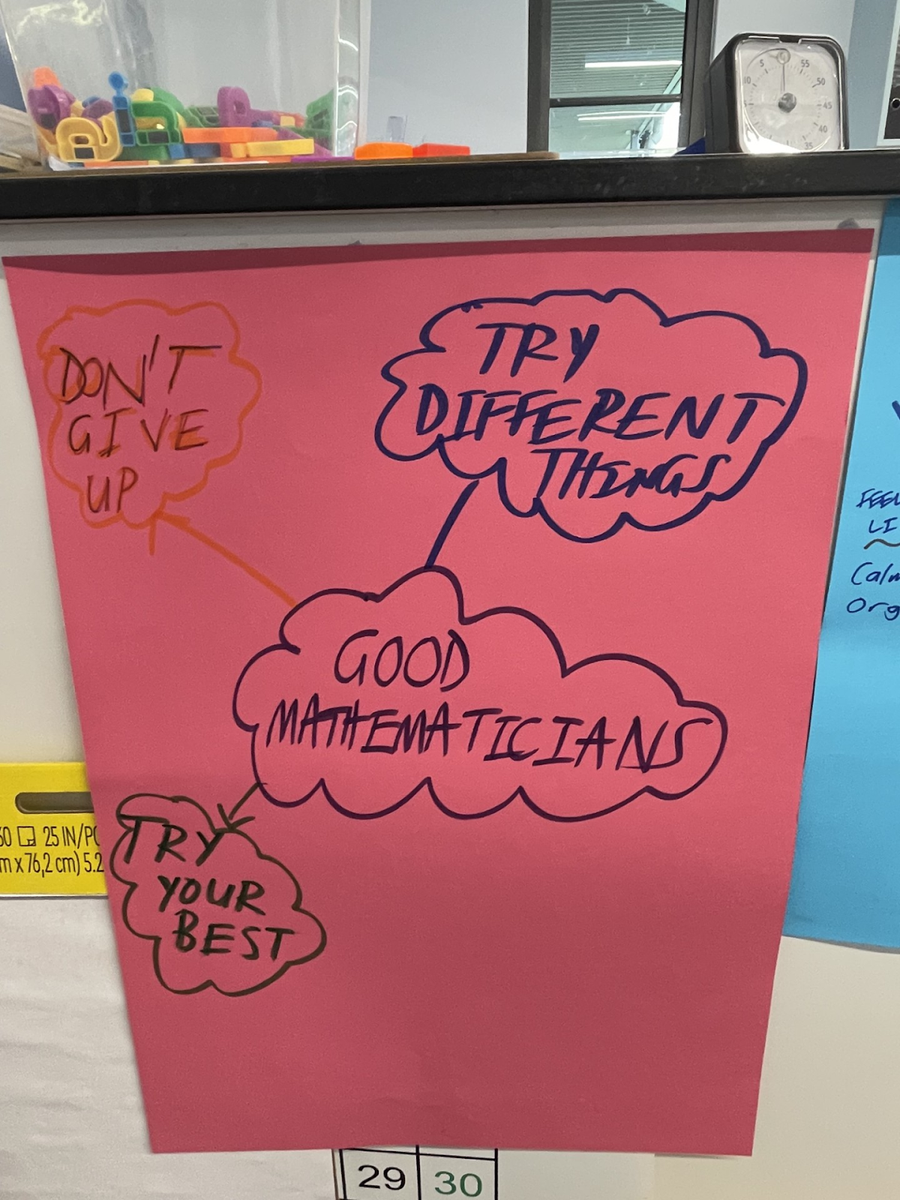 5 55
10 50
45
40
35
DON'T
GIVE
UP
TRY
DIFFERENT
THINGS
GOOD
MATHEMATICIANS
TRY
YOUR
BEST
LI
25 IN/PC
m x 76,2 cm) 5.2
29 30